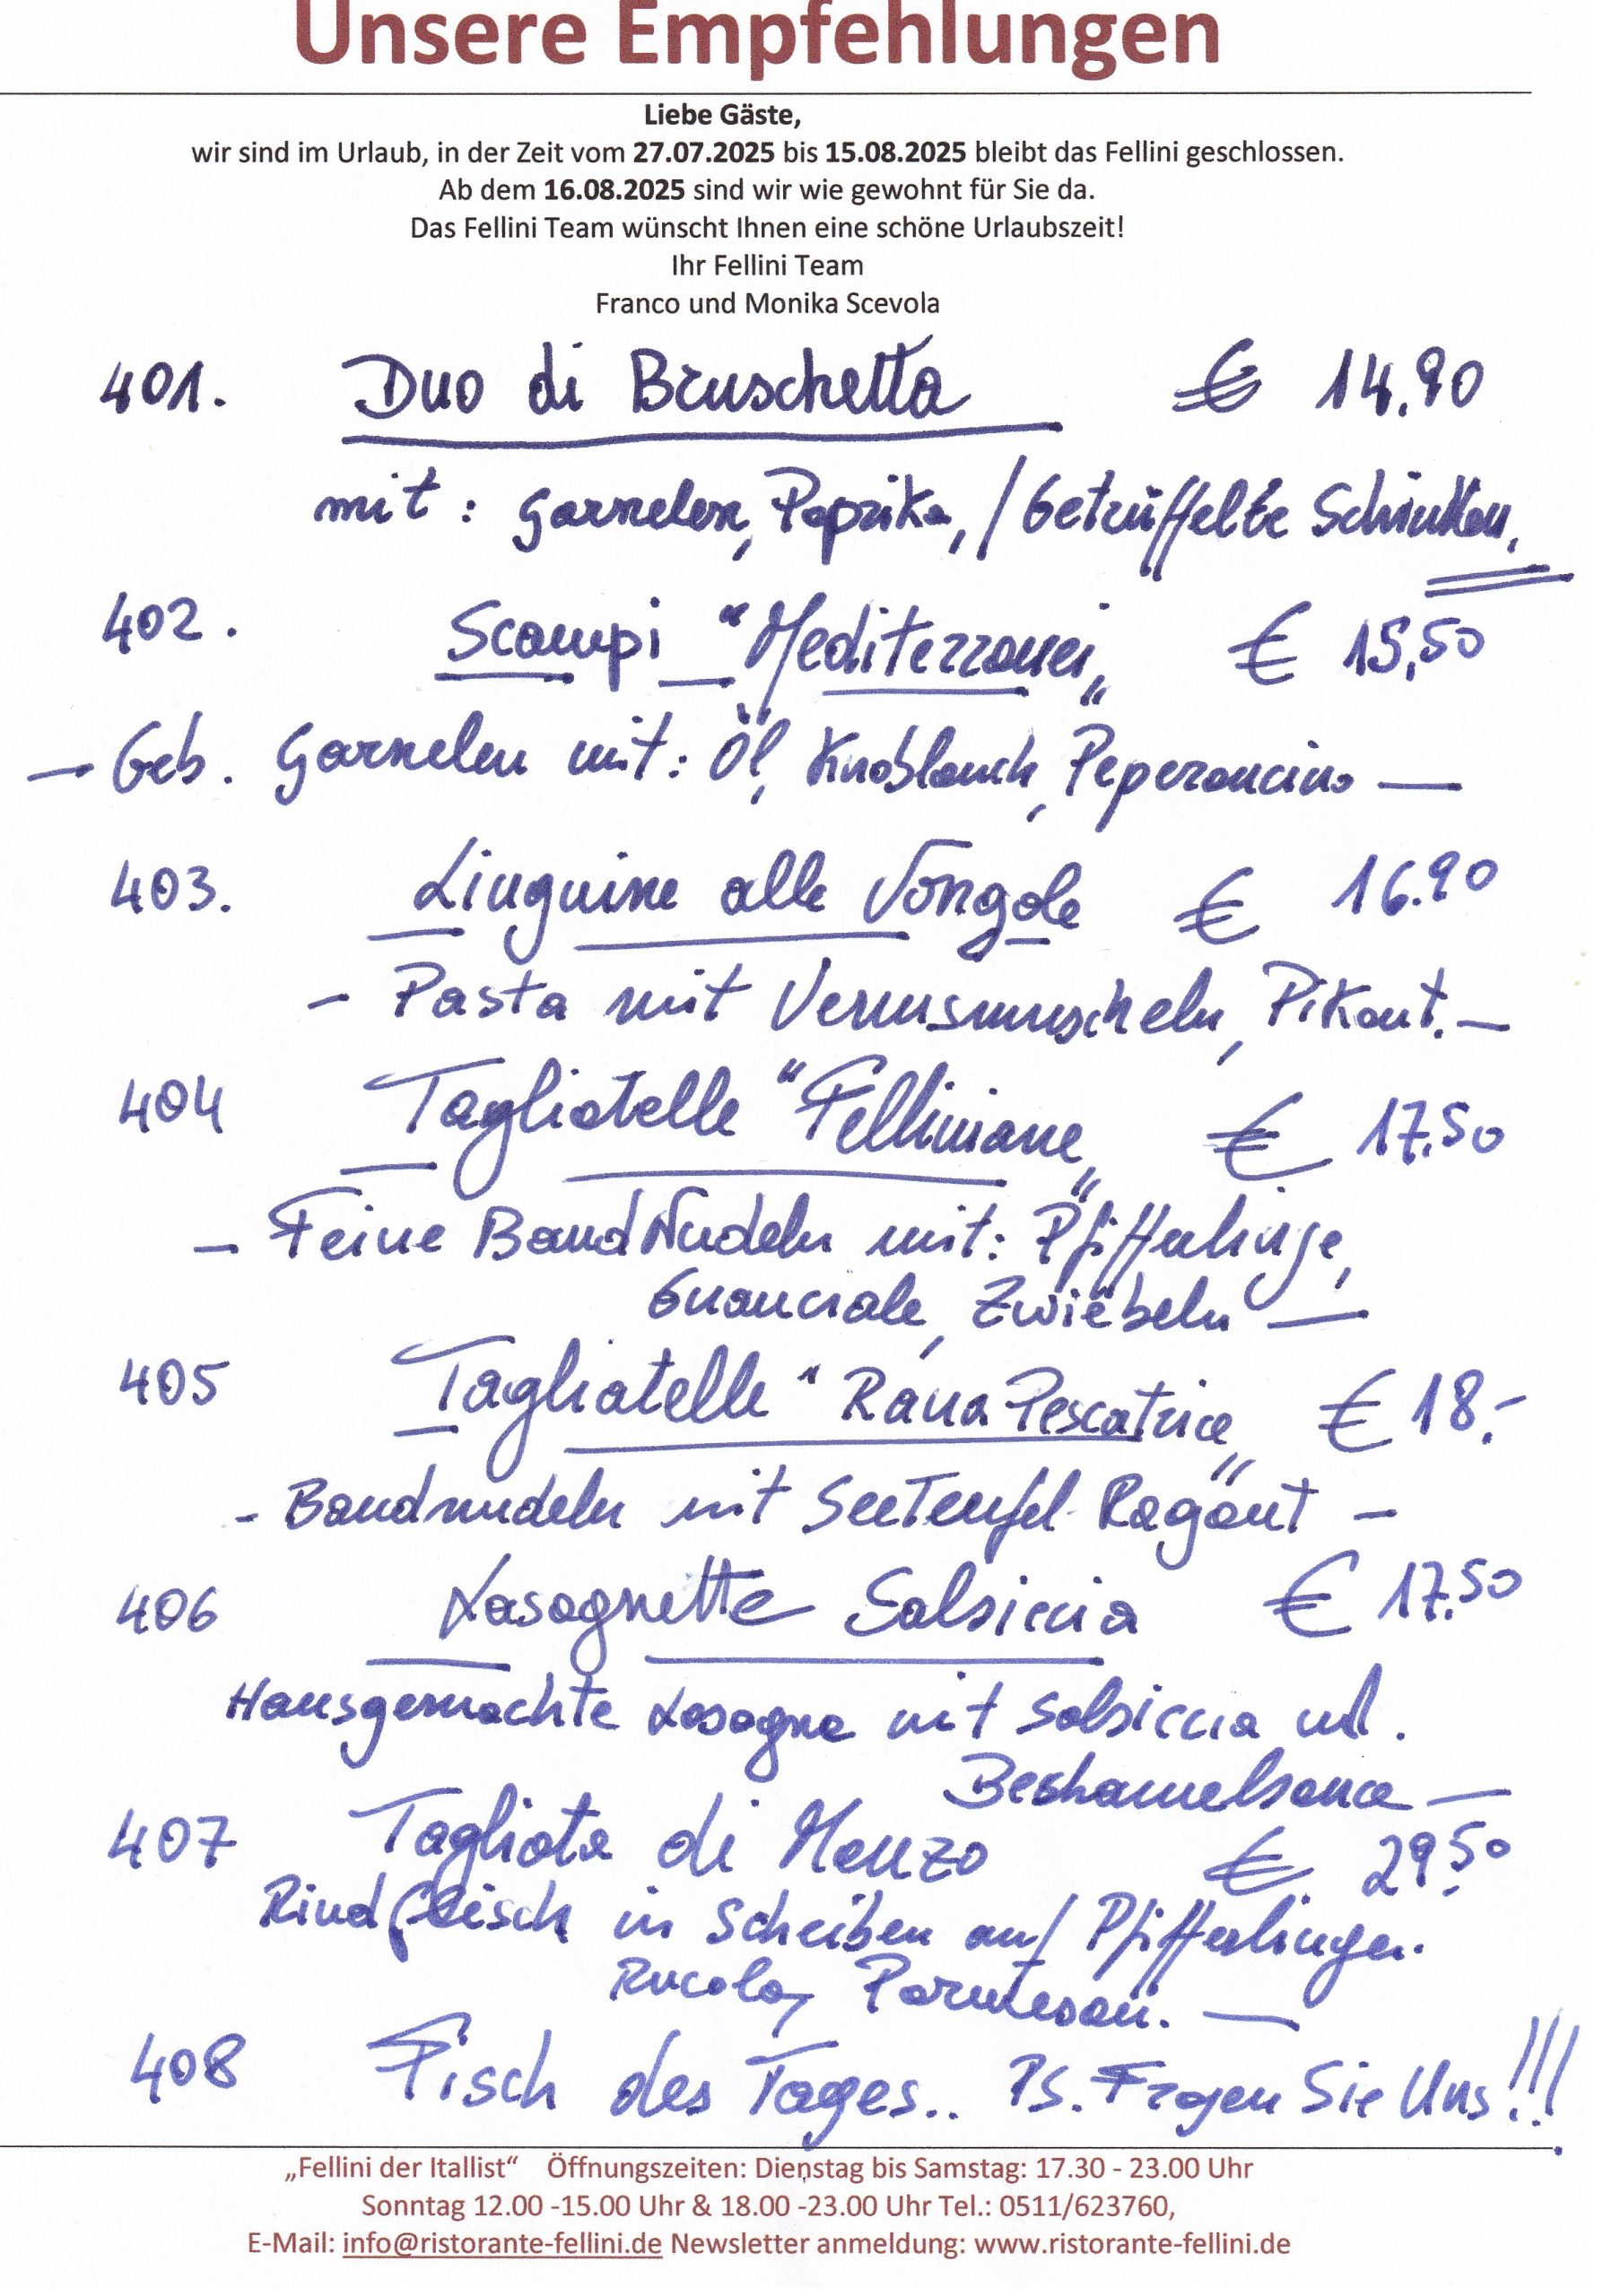 Unsere Empfehlungen
Liebe Gäste,
wir sind im Urlaub, in der Zeit vom 27.07.2025 bis 15.08.2025 bleibt das Fellini geschlossen.
Ab dem 16.08.2025 sind wir wie gewohnt für Sie da.
Das Fellini Team wünscht Ihnen eine schöne Urlaubszeit!
Ihr Fellini Team
Franco und Monika Scevola
401. Duo di Bruschetta € 14.90
mit: Garnelen, Paprika, / Getrüffelte Schinken,
402. Scampi "Mediterranei" € 15,50
— Geb. Garnelen mit: Öl, Knoblauch, Peperoncino —
403. Linguine alle Vongole € 16.90
- Pasta mit Venusmuscheln, Pikant. —
404 Tagliatelle "Felliniane" € 17.50
- Feine BandNudeln mit: Pfifferlinge,
Guanciale, Zwiebeln —
405 Tagliatelle "Rana Pescatrice" € 18.-
- Bandnudeln mit SeeTeufel-Ragout -
406 Lasagnette Salsiccia € 17.50
Hausgemachte Lasagne mit Salsiccia ud.
Beshamelsauce —
407 Tagliata di Manzo € 29.50
Rindfleisch in Scheiben auf Pfifferlingen.
Rucola, Parmesan. —
408 Fisch des Tages.. PS. Fragen Sie Uns!!!
„Fellini der Itallist“ Öffnungszeiten: Dienstag bis Samstag: 17.30 - 23.00 Uhr
Sonntag 12.00 -15.00 Uhr & 18.00 -23.00 Uhr Tel.: 0511/623760,
E-Mail: info@ristorante-fellini.de Newsletter anmeldung: www.ristorante-fellini.de